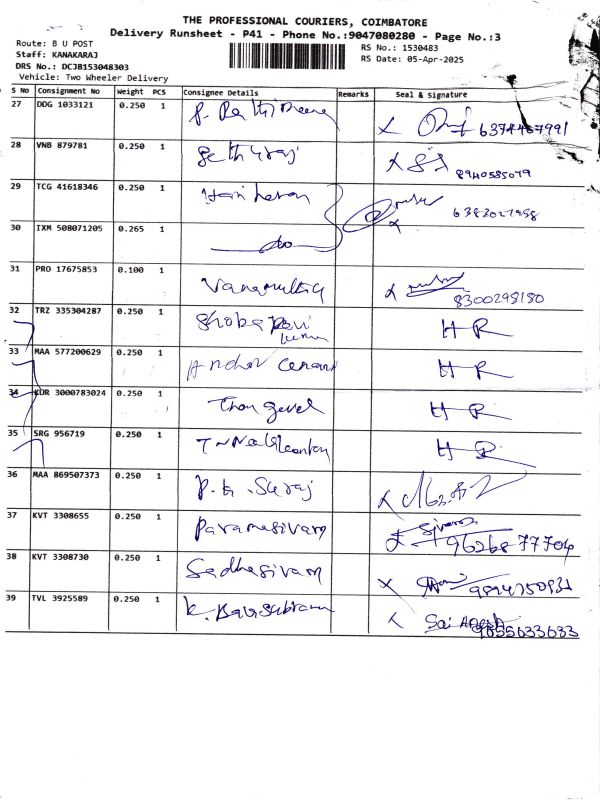 THE PROFESSIONAL COURIERS, COIMBATORE
Delivery Runsheet - P41 - Phone No.:9047080280 - Page No.:3
Route: B U POST
Staff: KANAKARAJ
DRS No.: DCJB153048303
Vehicle: Two Wheeler Delivery
RS No.: 1530483
RS Date: 05-Apr-2025
S No Consignment No Weight PCS Consignee Details Remarks Seal & Signature
27 DDG 1033121 0.250 1 P. 6374467991
28 VNB 879781 0.250 1 Sethuraj 8940585079
29 TCG 41618346 0.250 1 Hariharan 6383027958
30 IXM 508071205 0.265 1 do
31 PRO 17675853 0.100 1 Vanamuthu 8300298180
32 TRZ 335304287 0.250 1 Shoba Devi H R
33 MAA 577200629 0.250 1 Anchor Cement H R
34 KUR 3000783024 0.250 1 Thangavel H R
35 SRG 956719 0.250 1 H R
36 MAA 869507373 0.250 1 P.K. Suraj
37 KVT 3308655 0.250 1 Paramasivam 96268 77704
38 KVT 3308730 0.250 1 Sadhasivam
39 TVL 3925589 0.250 1 K. Balasubramani Sai 9855633633